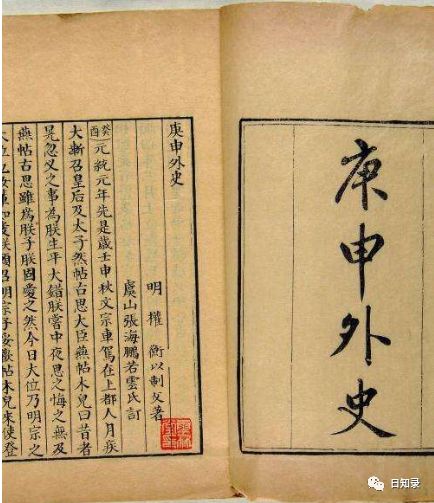 庚申外史
庚申外史
明 權 衡以制文著
虞山張海鵬若雲氏訂
癸酉元統元年先是歲壬申秋文宗車駕在上都八月疾
大漸召皇后及太子燕帖古思大臣燕帖木兒曰昔者
晃忽叉之事為朕生平大錯朕嘗中夜思之悔之無及
燕帖古思雖為朕子朕固愛之然今日大位乃明宗之
大位也汝輩如愛朕願召明宗子妥懽帖木兒來使登
日知录